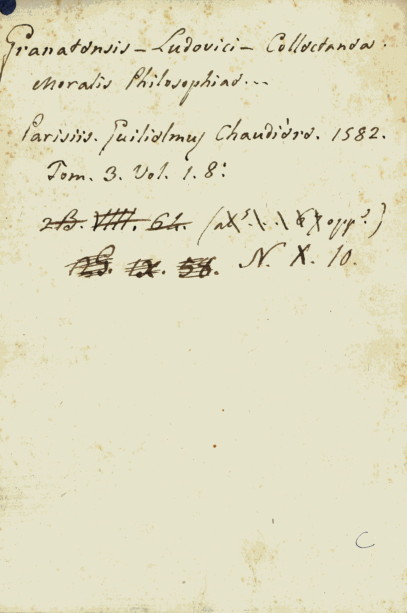 Granatensis - Ludovici - Collectanea.
Moralis Philosophiae...
Parisiis. Guilielmus Chaudière. 1582.
Tom. 3. Vol. 1. 8:
2B. VIII. 62.
IX. 58. N. X. 10.
C